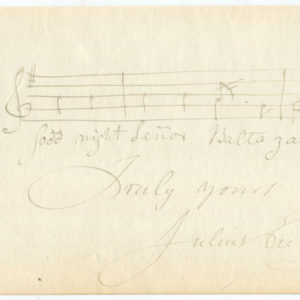 Good night Señor Balta za
Truly yours
Julius